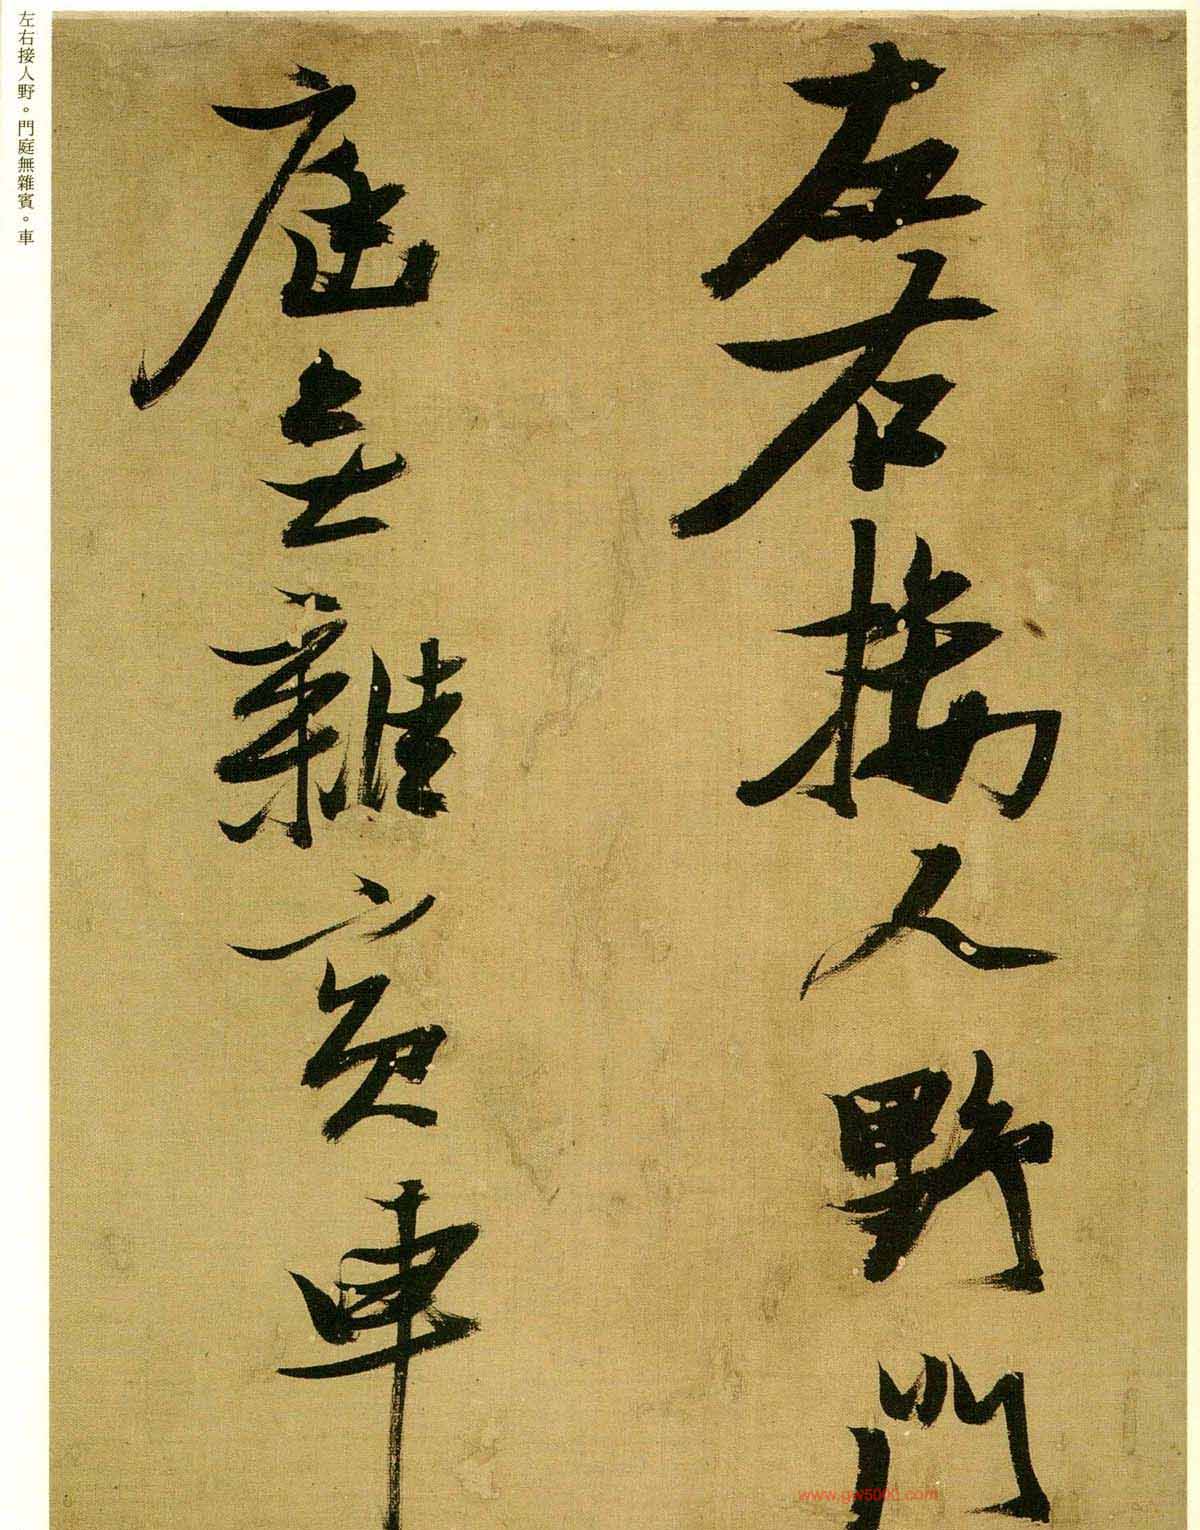 左右接人野門
庭無雜賓車
左右接人野。門庭無雜賓。車
www.gw5000.com